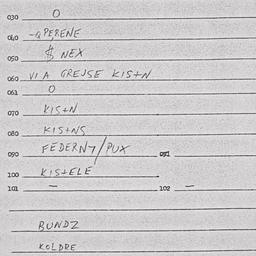 030 O
040 -QPERENE
050 $ NEX
060 VIA GREJSE KIS+N
061 O
070 KIS+N
080 KIS+NS
090 FEDERN7/PUX 091
100 KIS+ELE
101 — 102 —
BUNDZ
KOLDRE